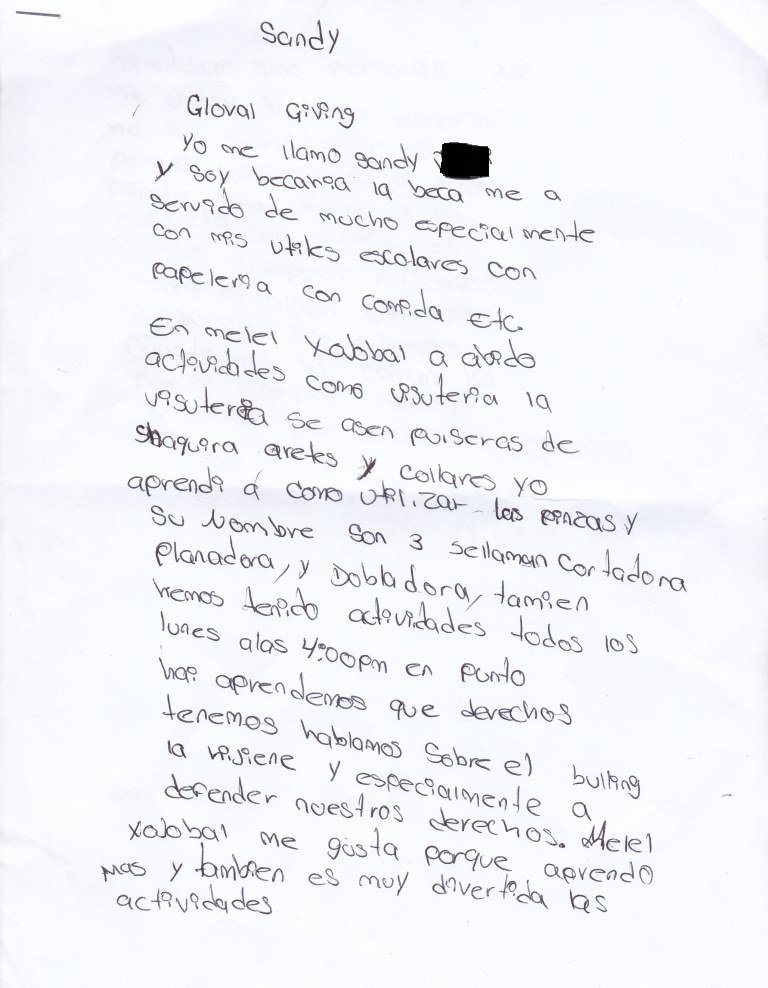 Sandy
Gloval Giving
yo me llamo sandy
y soy becaria la beca me a
servido de mucho especialmente
con mis utiles escolares con
papeleria con comida Etc.
En melel Xojobal a abido
actividades como visuteria la
visuteria se asen pulseras de
shaquira aretes y collares yo
aprendi a como utilizar las pinzas y
su Nombre son 3 sellaman cortadora
Planadora, y Dobladora, tamien
hemos tenido actividades todos los
lunes alas 4:00pm en punto
hai aprendemos que derechos
tenemos hablamos sobre el bulling
la hijiene y especialmente a
defender nuestros derechos. Melel
xojobal me gusta porque aprendo
mas y tambien es muy divertida las
actividades